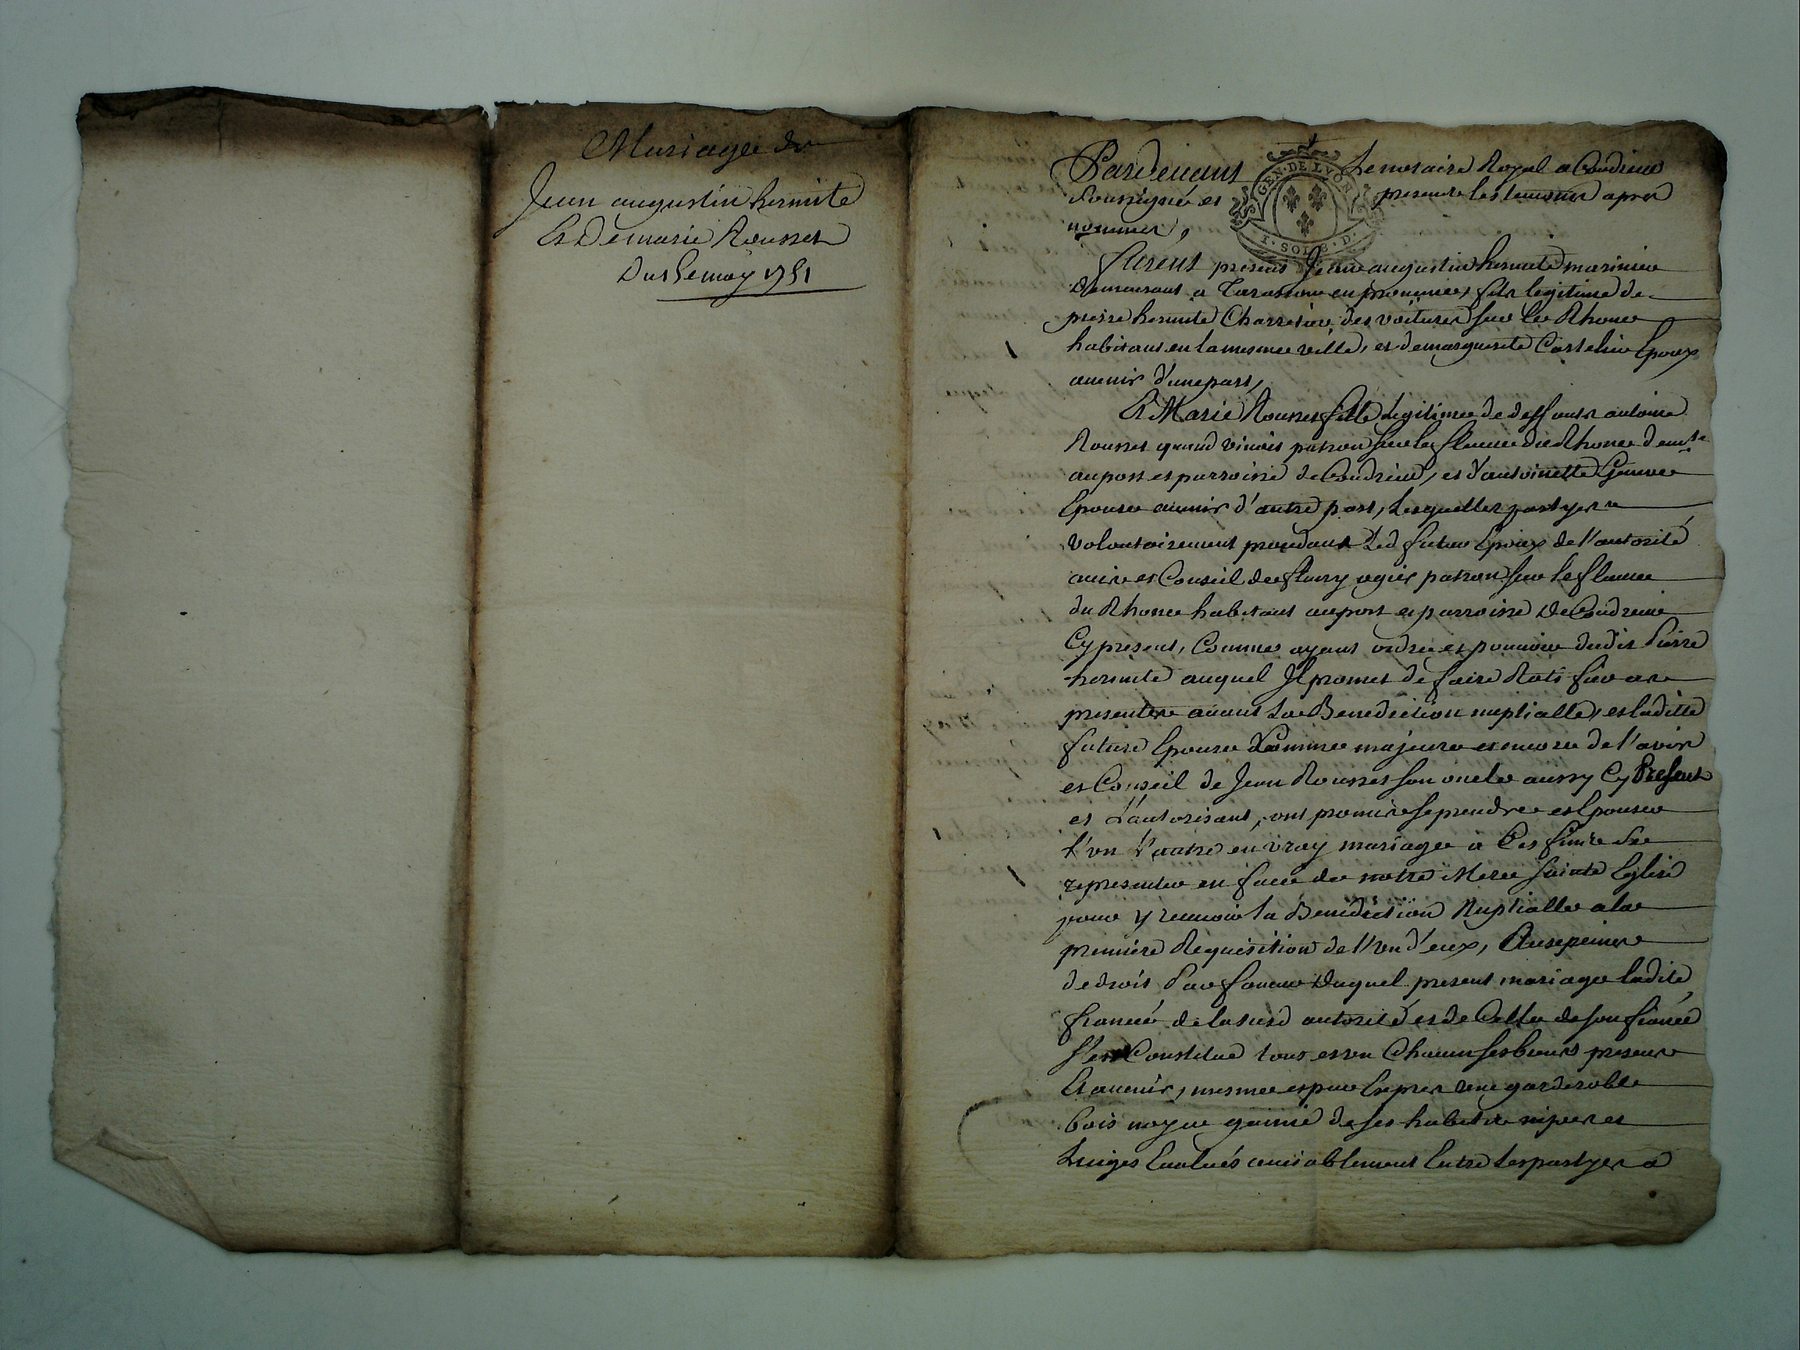 Mariage de
Jean augustin hermite
Et De marie Rousset
Du 15e may 1751
Pardevant Le notaire Royal a Condrieu
soussigné et presents les temoins apres
nommés,
GEN · DE LYON
1 · SOL 8 · D
furent presents Jean augustin hermite marinier
demeurant a Tarascon en provence, fils legitime de
pierre hermite Charretier des voitures sur le Rhone
habitant en la mesme ville, et de marguerite Castelin Epoux
avenir d'une part,
Et Marie Rousset fille Legitime de deffunts antoine
Rousset quand vivoit patron sur le fleuve du Rhone demt
au port et parroisse de Condrieu, et d'antoinette
Epouse avenir d'autre part, Lesquelles partyes
volontairement procedant Led futur Epoux de l'autorité
avis et Conseil de fleury ogier patron sur le fleuve
du Rhone habitant au port et parroisse de Condrieu
Cy present, Comme ayant ordre et pouvoir dudit Pierre
hermite auquel Il promet de faire Ratiffier ces
presentes avant La Benediction nuptialle, et laditte
future Epouse Comme majeure et encore de l'avis
et Conseil de Jean Rousset son oncle aussy Cy Present
et L'autorisant, ont promis se prendre et Epouser
l'un l'autre en vray mariage a Ces fins se
representer en face de notre Mere Sainte Eglise
pour y recevoir la Benediction Nuptialle a la
premiere Requisition de l'un d'eux, Aux peines
de droit En faveur Duquel present mariage ladite
fiancée de la susd autorité et de Celle de son fiancé
s'est Constitué tous et un Chacun ses biens presents
Et avenir, mesme et par Expres une garderobbe
bois noyer garnie de ses habits nipes et
Linges Evalués amiablement Entre les partyes a